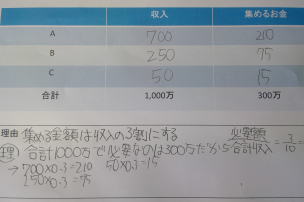 収入 集めるお金
A 700 210
B 250 75
C 50 15
合計 1,000万 300万
理由 集める金額は収入の3割にする
合計1000万で必要なのは300万だから 必要額/合計収入=3/10=
→700×0.3=210 50×0.3=15
250×0.3=75